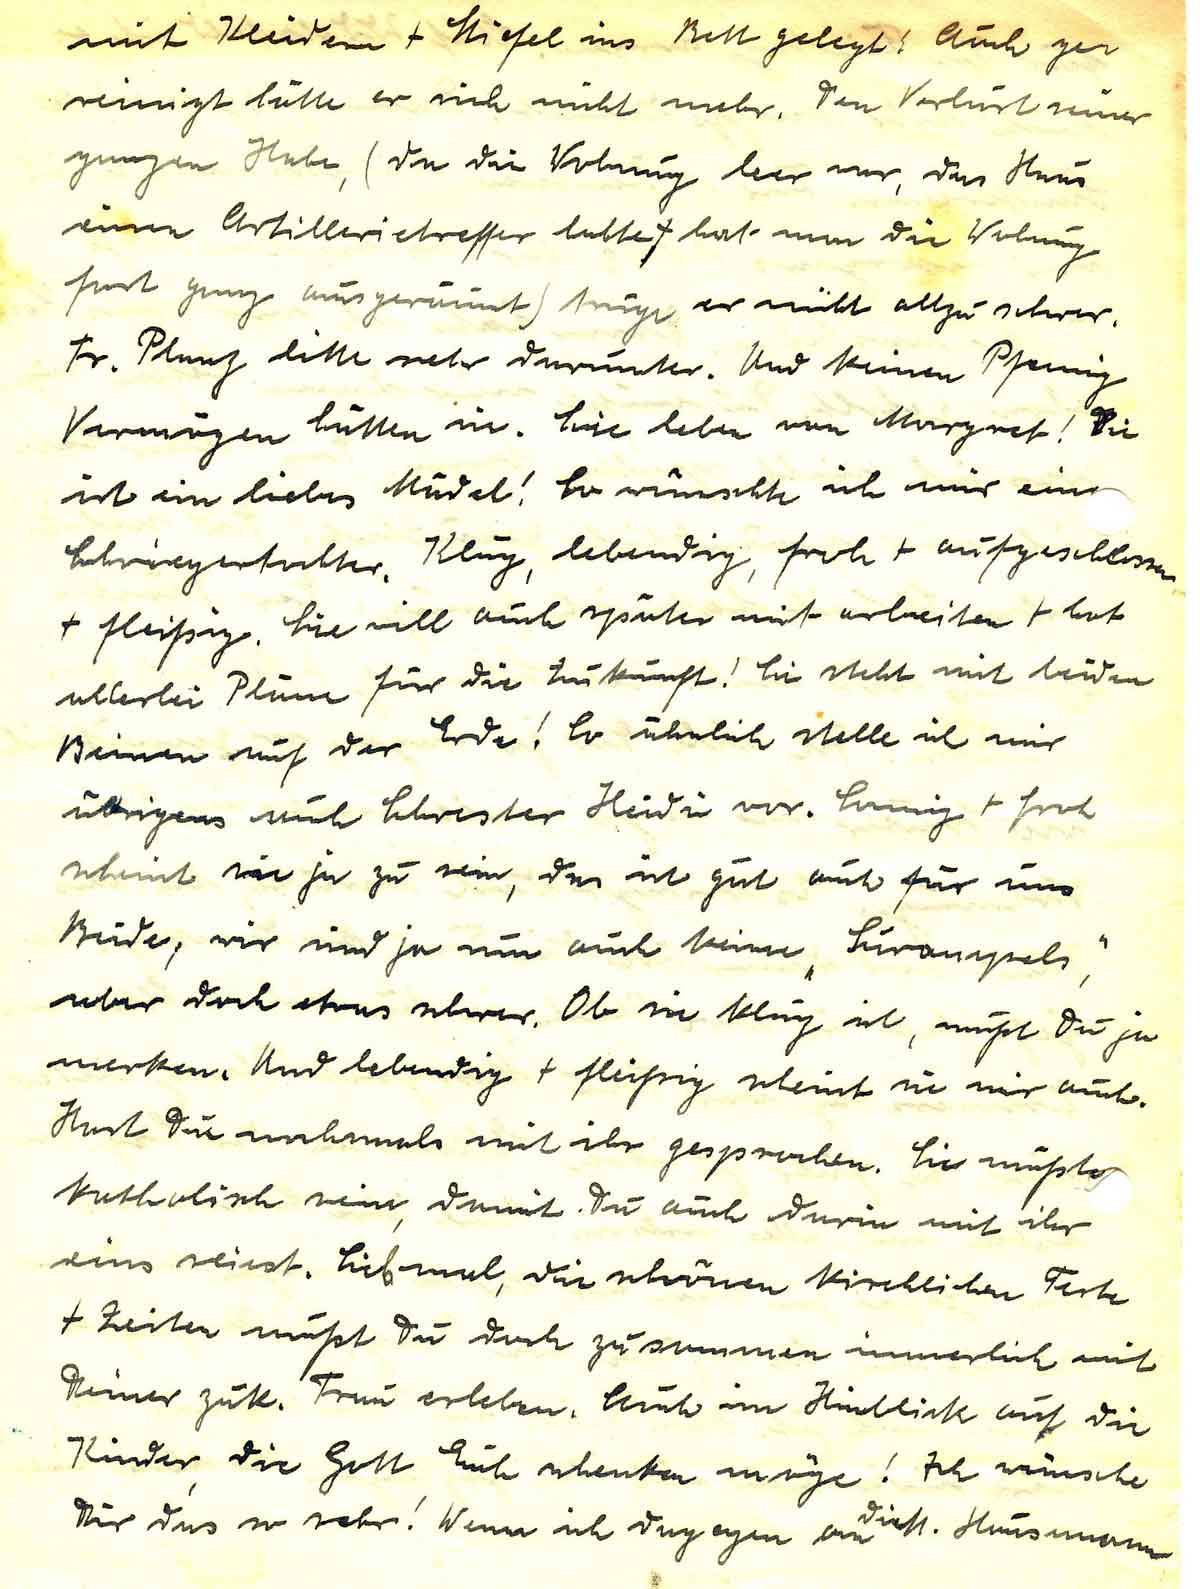 mit Kleidern + Stiefel ins Bett gelegt! Auch ge=
reinigt hätte er sich nicht mehr. Den Verlust seiner
ganzen Habe, (da die Wohnung leer war, das Haus
einen Artillerietreffer hatte, hat man die Wohnung
fast ganz ausgeräumt) trüge er nicht allzu schwer.
Fr. Planz litte sehr darunter. Und keinen Pfennig
Vermögen hätten sie. Sie leben von Margret! Die
ist ein liebes Mädel! So wünschte ich mir eine
Schwiegertochter. Klug, lebendig, froh + aufgeschlossen
+ fleißig. Sie will auch später mit arbeiten + hat
allerlei Pläne für die Zukunft! Sie steht mit beiden
Beinen auf der Erde! So ähnlich stelle ich mir
übrigens auch Schwester Heidi vor. Sonnig + froh
scheint sie ja zu sein, das ist gut auch für uns
Beide, wir sind ja nun auch keine „Surampels",
aber doch etwas schwer. Ob sie klug ist, mußt Du ja
merken. Und lebendig + fleißig scheint sie mir auch.
Hast Du nochmals mit ihr gesprochen. Sie müßte
katholisch sein, damit Du auch darin mit ihr
eins seiest. Sieh mal, die schönen kirchlichen Feste
+ Zeiten mußt Du doch zusammen innerlich mit
Deiner zuk. Frau erleben. Auch im Hinblick auf die
Kinder, die Gott Euch schenken möge! Ich wünsche
Dir das so sehr! Wenn ich dagegen an die Hausmann